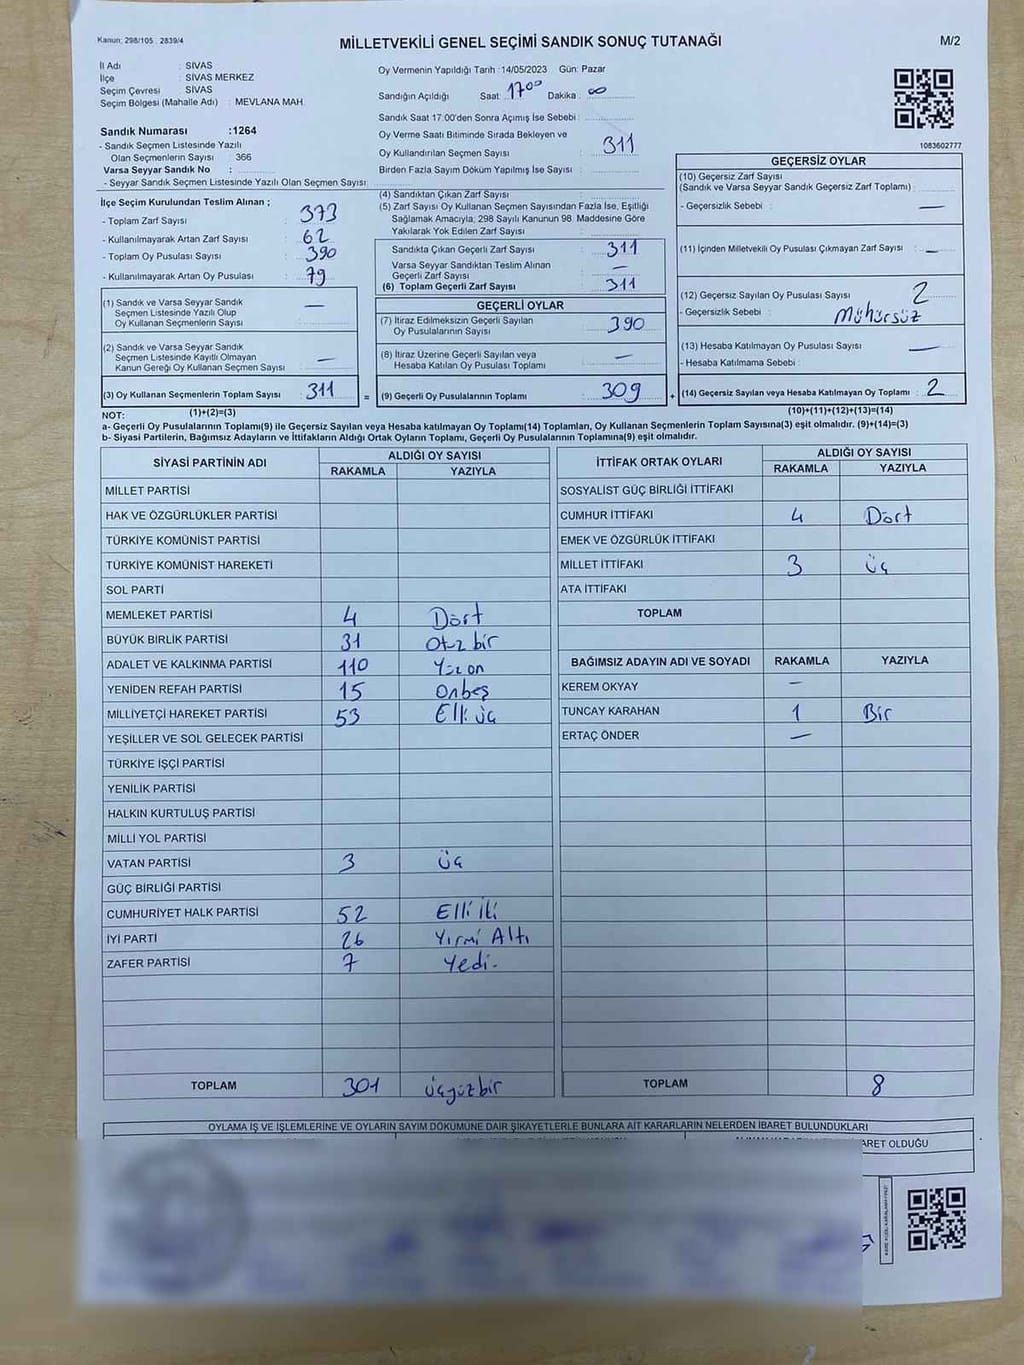 Kanun; 298/105 . 2839/4
MİLLETVEKİLİ GENEL SEÇİMİ SANDIK SONUÇ TUTANAĞI
M/2
İl Adı : SİVAS
İlçe : SİVAS MERKEZ
Seçim Çevresi : SİVAS
Seçim Bölgesi (Mahalle Adı) : MEVLANA MAH.
Sandık Numarası :1264
- Sandık Seçmen Listesinde Yazılı
Olan Seçmenlerin Sayısı : 366
Varsa Seyyar Sandık No :
- Seyyar Sandık Seçmen Listesinde Yazılı Olan Seçmen Sayısı:
Oy Vermenin Yapıldığı Tarih :14/05/2023 Gün: Pazar
Sandığın Açıldığı Saat: 17°° Dakika : ∞
Sandık Saat 17:00'den Sonra Açımış İse Sebebi :
Oy Verme Saati Bitiminde Sırada Bekleyen ve
Oy Kullandırılan Seçmen Sayısı : 311
Birden Fazla Sayım Döküm Yapılmış İse Sayısı :
1083602777
İlçe Seçim Kurulundan Teslim Alınan ;
- Toplam Zarf Sayısı : 373
- Kullanılmayarak Artan Zarf Sayısı : 62
- Toplam Oy Pusulası Sayısı : 390
- Kullanılmayarak Artan Oy Pusulası : 79
(1) Sandık ve Varsa Seyyar Sandık
Seçmen Listesinde Yazılı Olup
Oy Kullanan Seçmenlerin Sayısı : —
(2) Sandık ve Varsa Seyyar Sandık
Seçmen Listesinde Kayıtlı Olmayan
Kanun Gereği Oy Kullanan Seçmen Sayısı : —
(3) Oy Kullanan Seçmenlerin Toplam Sayısı : 311
(4) Sandıktan Çıkan Zarf Sayısı :
(5) Zarf Sayısı Oy Kullanan Seçmen Sayısından Fazla İse, Eşitliği
Sağlamak Amacıyla; 298 Sayılı Kanunun 98. Maddesine Göre
Yakılarak Yok Edilen Zarf Sayısı :
Sandıkta Çıkan Geçerli Zarf Sayısı : 311
Varsa Seyyar Sandıktan Teslim Alınan
Geçerli Zarf Sayısı : —
(6) Toplam Geçerli Zarf Sayısı : 311
GEÇERLİ OYLAR
(7) İtiraz Edilmeksizin Geçerli Sayılan
Oy Pusulalarının Sayısı : 390
(8) İtiraz Üzerine Geçerli Sayılan veya
Hesaba Katılan Oy Pusulası Toplamı : —
= (9) Geçerli Oy Pusulalarının Toplamı : 309
GEÇERSİZ OYLAR
(10) Geçersiz Zarf Sayısı
(Sandık ve Varsa Seyyar Sandık Geçersiz Zarf Toplamı) :
- Geçersizlik Sebebi : —
(11) İçinden Milletvekili Oy Pusulası Çıkmayan Zarf Sayısı : —
(12) Geçersiz Sayılan Oy Pusulası Sayısı : 2
- Geçersizlik Sebebi : Mühürsüz
(13) Hesaba Katılmayan Oy Pusulası Sayısı : —
- Hesaba Katılmama Sebebi :
+ (14) Geçersiz Sayılan veya Hesaba Katılmayan Oy Toplamı : 2
NOT: (1)+(2)=(3)
(10)+(11)+(12)+(13)=(14)
a- Geçerli Oy Pusulalarının Toplamı(9) ile Geçersiz Sayılan veya Hesaba katılmayan Oy Toplamı(14) Toplamları, Oy Kullanan Seçmenlerin Toplam Sayısına(3) eşit olmalıdır. (9)+(14)=(3)
b- Siyasi Partilerin, Bağımsız Adayların ve İttifakların Aldığı Ortak Oyların Toplamı, Geçerli Oy Pusulalarının Toplamına(9) eşit olmalıdır.
SİYASİ PARTİNİN ADI ALDIĞI OY SAYISI
RAKAMLA YAZIYLA
MİLLET PARTİSİ
HAK VE ÖZGÜRLÜKLER PARTİSİ
TÜRKİYE KOMÜNİST PARTİSİ
TÜRKİYE KOMÜNİST HAREKETİ
SOL PARTİ
MEMLEKET PARTİSİ 4 Dört
BÜYÜK BİRLİK PARTİSİ 31 Otuz bir
ADALET VE KALKINMA PARTİSİ 110 Yüz on
YENİDEN REFAH PARTİSİ 15 Onbeş
MİLLİYETÇİ HAREKET PARTİSİ 53 Elli üç
YEŞİLLER VE SOL GELECEK PARTİSİ
TÜRKİYE İŞÇİ PARTİSİ
YENİLİK PARTİSİ
HALKIN KURTULUŞ PARTİSİ
MİLLİ YOL PARTİSİ
VATAN PARTİSİ 3 üç
GÜÇ BİRLİĞİ PARTİSİ
CUMHURİYET HALK PARTİSİ 52 Elli iki
İYİ PARTİ 26 Yirmi Altı
ZAFER PARTİSİ 7 Yedi.
TOPLAM 301 üçyüzbir
İTTİFAK ORTAK OYLARI ALDIĞI OY SAYISI
RAKAMLA YAZIYLA
SOSYALİST GÜÇ BİRLİĞİ İTTİFAKI
CUMHUR İTTİFAKI 4 Dört
EMEK VE ÖZGÜRLÜK İTTİFAKI
MİLLET İTTİFAKI 3 üç
ATA İTTİFAKI
TOPLAM
BAĞIMSIZ ADAYIN ADI VE SOYADI RAKAMLA YAZIYLA
KEREM OKYAY —
TUNCAY KARAHAN 1 Bir
ERTAÇ ÖNDER —
TOPLAM 8
OYLAMA İŞ VE İŞLEMLERİNE VE OYLARIN SAYIM DÖKÜMÜNE DAİR ŞİKAYETLERLE BUNLARA AİT KARARLARIN NELERDEN İBARET BULUNDUKLARI
ARET OLDUĞU